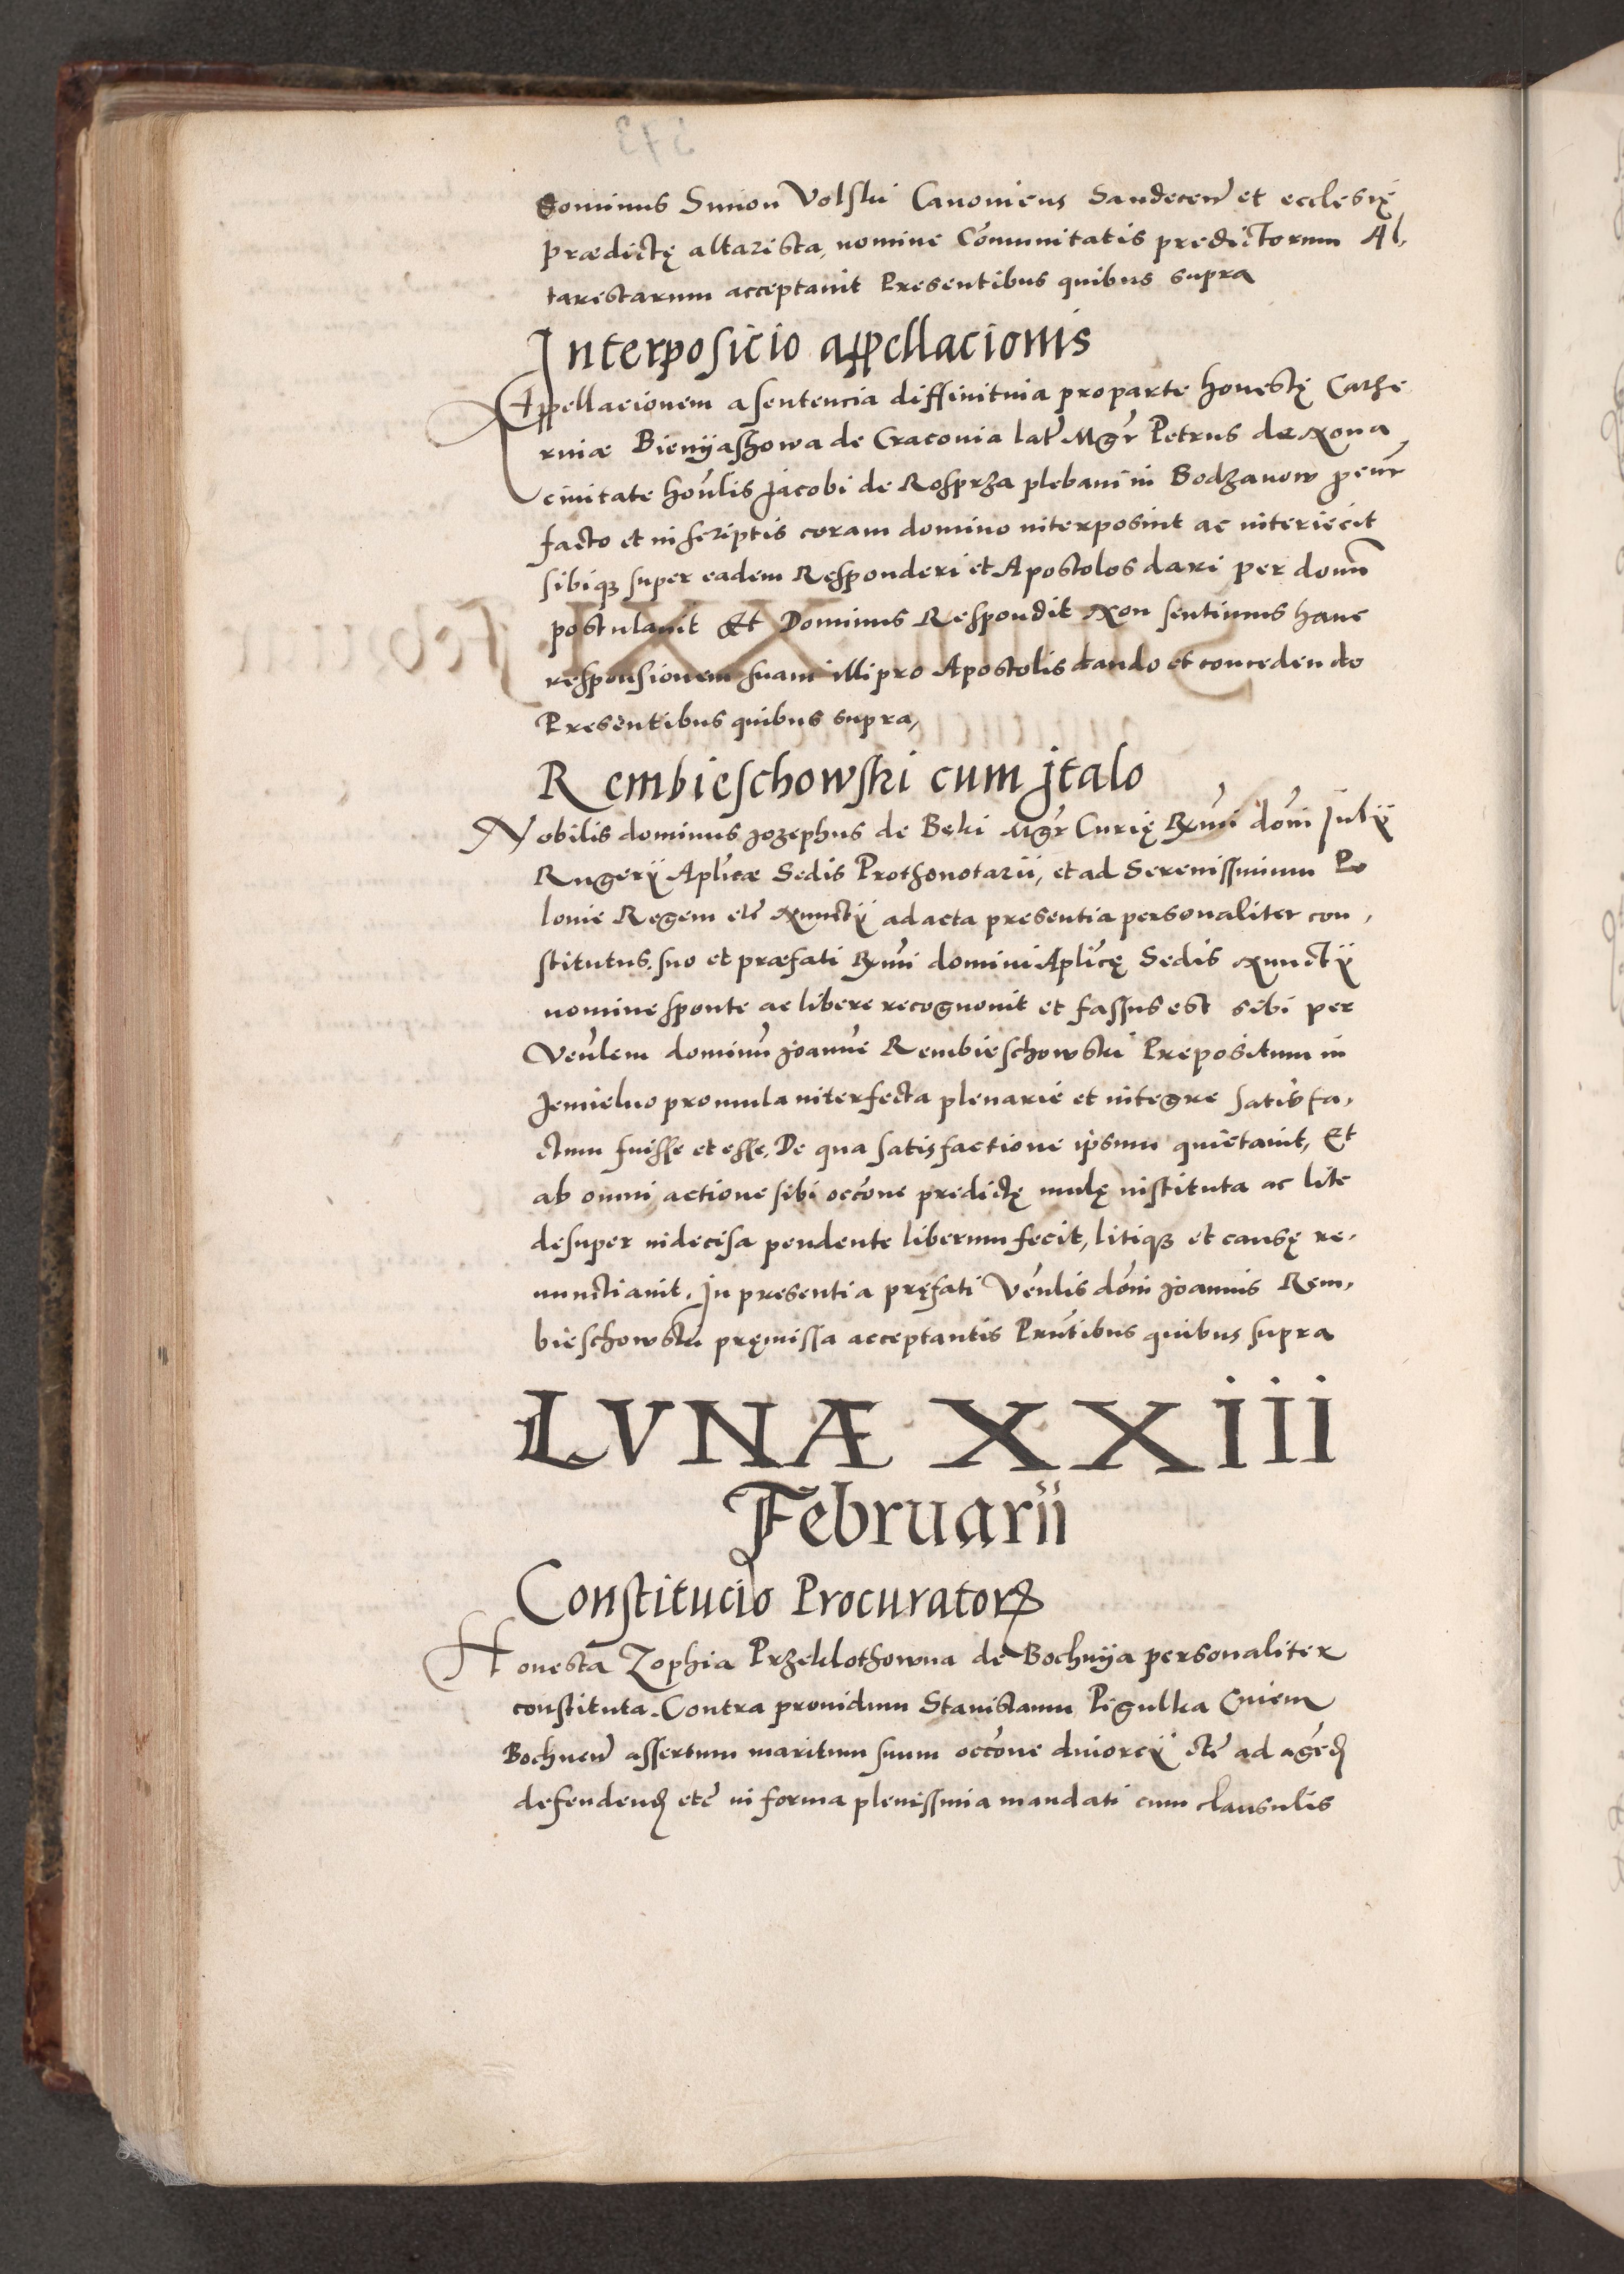 dominus Simon Volski Canonicus Sandecen̄ et ecclesię
prædictę altarista, nomine Cōmunitatis predictorum Al,
tarestarum acceptauit Presentibus quibus supra
Interposicio appellacionis
Appellacionem a sentencia diffinitiua pro parte honestę Cathe
rinæ Bieniiashowa de Cracouia lat̄ Mgr̄ Petrus de Noua
ciuitate hon̄lis Jacobi de Rosprza plebani in Bodzanow pn̄r
facto et in scriptis coram domino interposuit ac interiecit
sibiq3 super eadem Responderi et Apostolos dari per domn̄
postulauit Et Dominus Respondit Non sentimus hanc
responsionem suam illi pro Apostolis dando et concedendo
Presentibus quibus supra,
Rembieschowski cum Jtalo
Nobilis dominus Jozephus de Beki Mgr̄ Curię Rx̄mi dom̄i Julii
Rugerii Aplicæ Sedis Prothonotarii, et ad Serenissimum Po
lonie Regem etc̄ Nunctii ad acta presentia personaliter con,
stitutus, suo et præfati Rx̄mi domini Aplicę Sedis Nunctii
nomine sponte ac libere recognouit et fassus est sibi per
Ven̄lem dominū Joannē Rembieschowski Prepositum in
Jemielno pro mula interfecta plenarie et integre satis fa,
ctum fuisse et esse, De qua satisfactione ipsum quietauit, Et
ab omni actione sibi occ̄one predictę mulę instituta ac lite
desuper indecisa pendente liberum fecit, litiq3 et causę re-
nunctiauit. Jn presentia pręfati Ven̄lis dom̄i Joannis Rem,
bieschowski pręmissa acceptantis Prn̄tibus quibus supra
LVNÆ XXiii
Februarii
Constitucio Procuratorꝝ
Honesta Zophia Przeklothowna de Bochniia personaliter
constituta. Contra prouidum Stanislaum Pigulka Ciuem
Bochnen̄ assertum maritum suum occ̄one diuorcii etc̄ ad agēd
defendend etc̄ in forma plenissima mandati cum clausulis